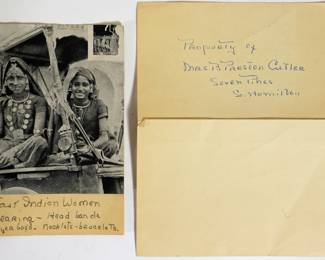 East Indian Women
Wearing - Head bands
Necklets - bracelets.
Property of
Mrs B Preston Cutler
Seven Pines
S. Hamilton